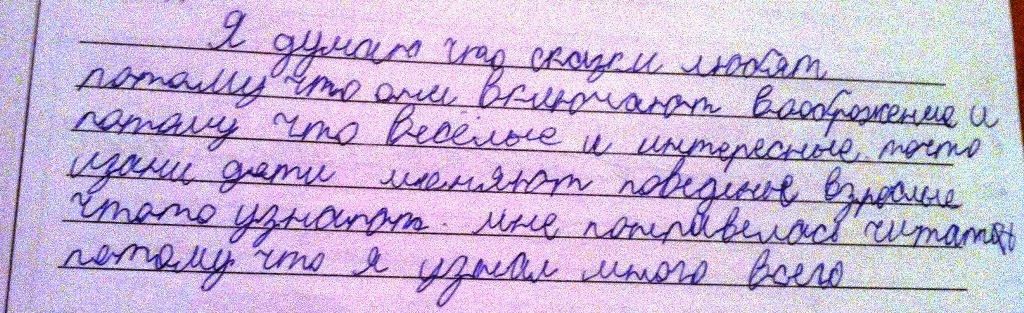 Я думаю что сказки любят
потому что они включают вооброжение и
потому что весёлые и интересные
дети меняют поведение взрослые
чтото узнают. мне понравелась читать
потому что я узнал много всего